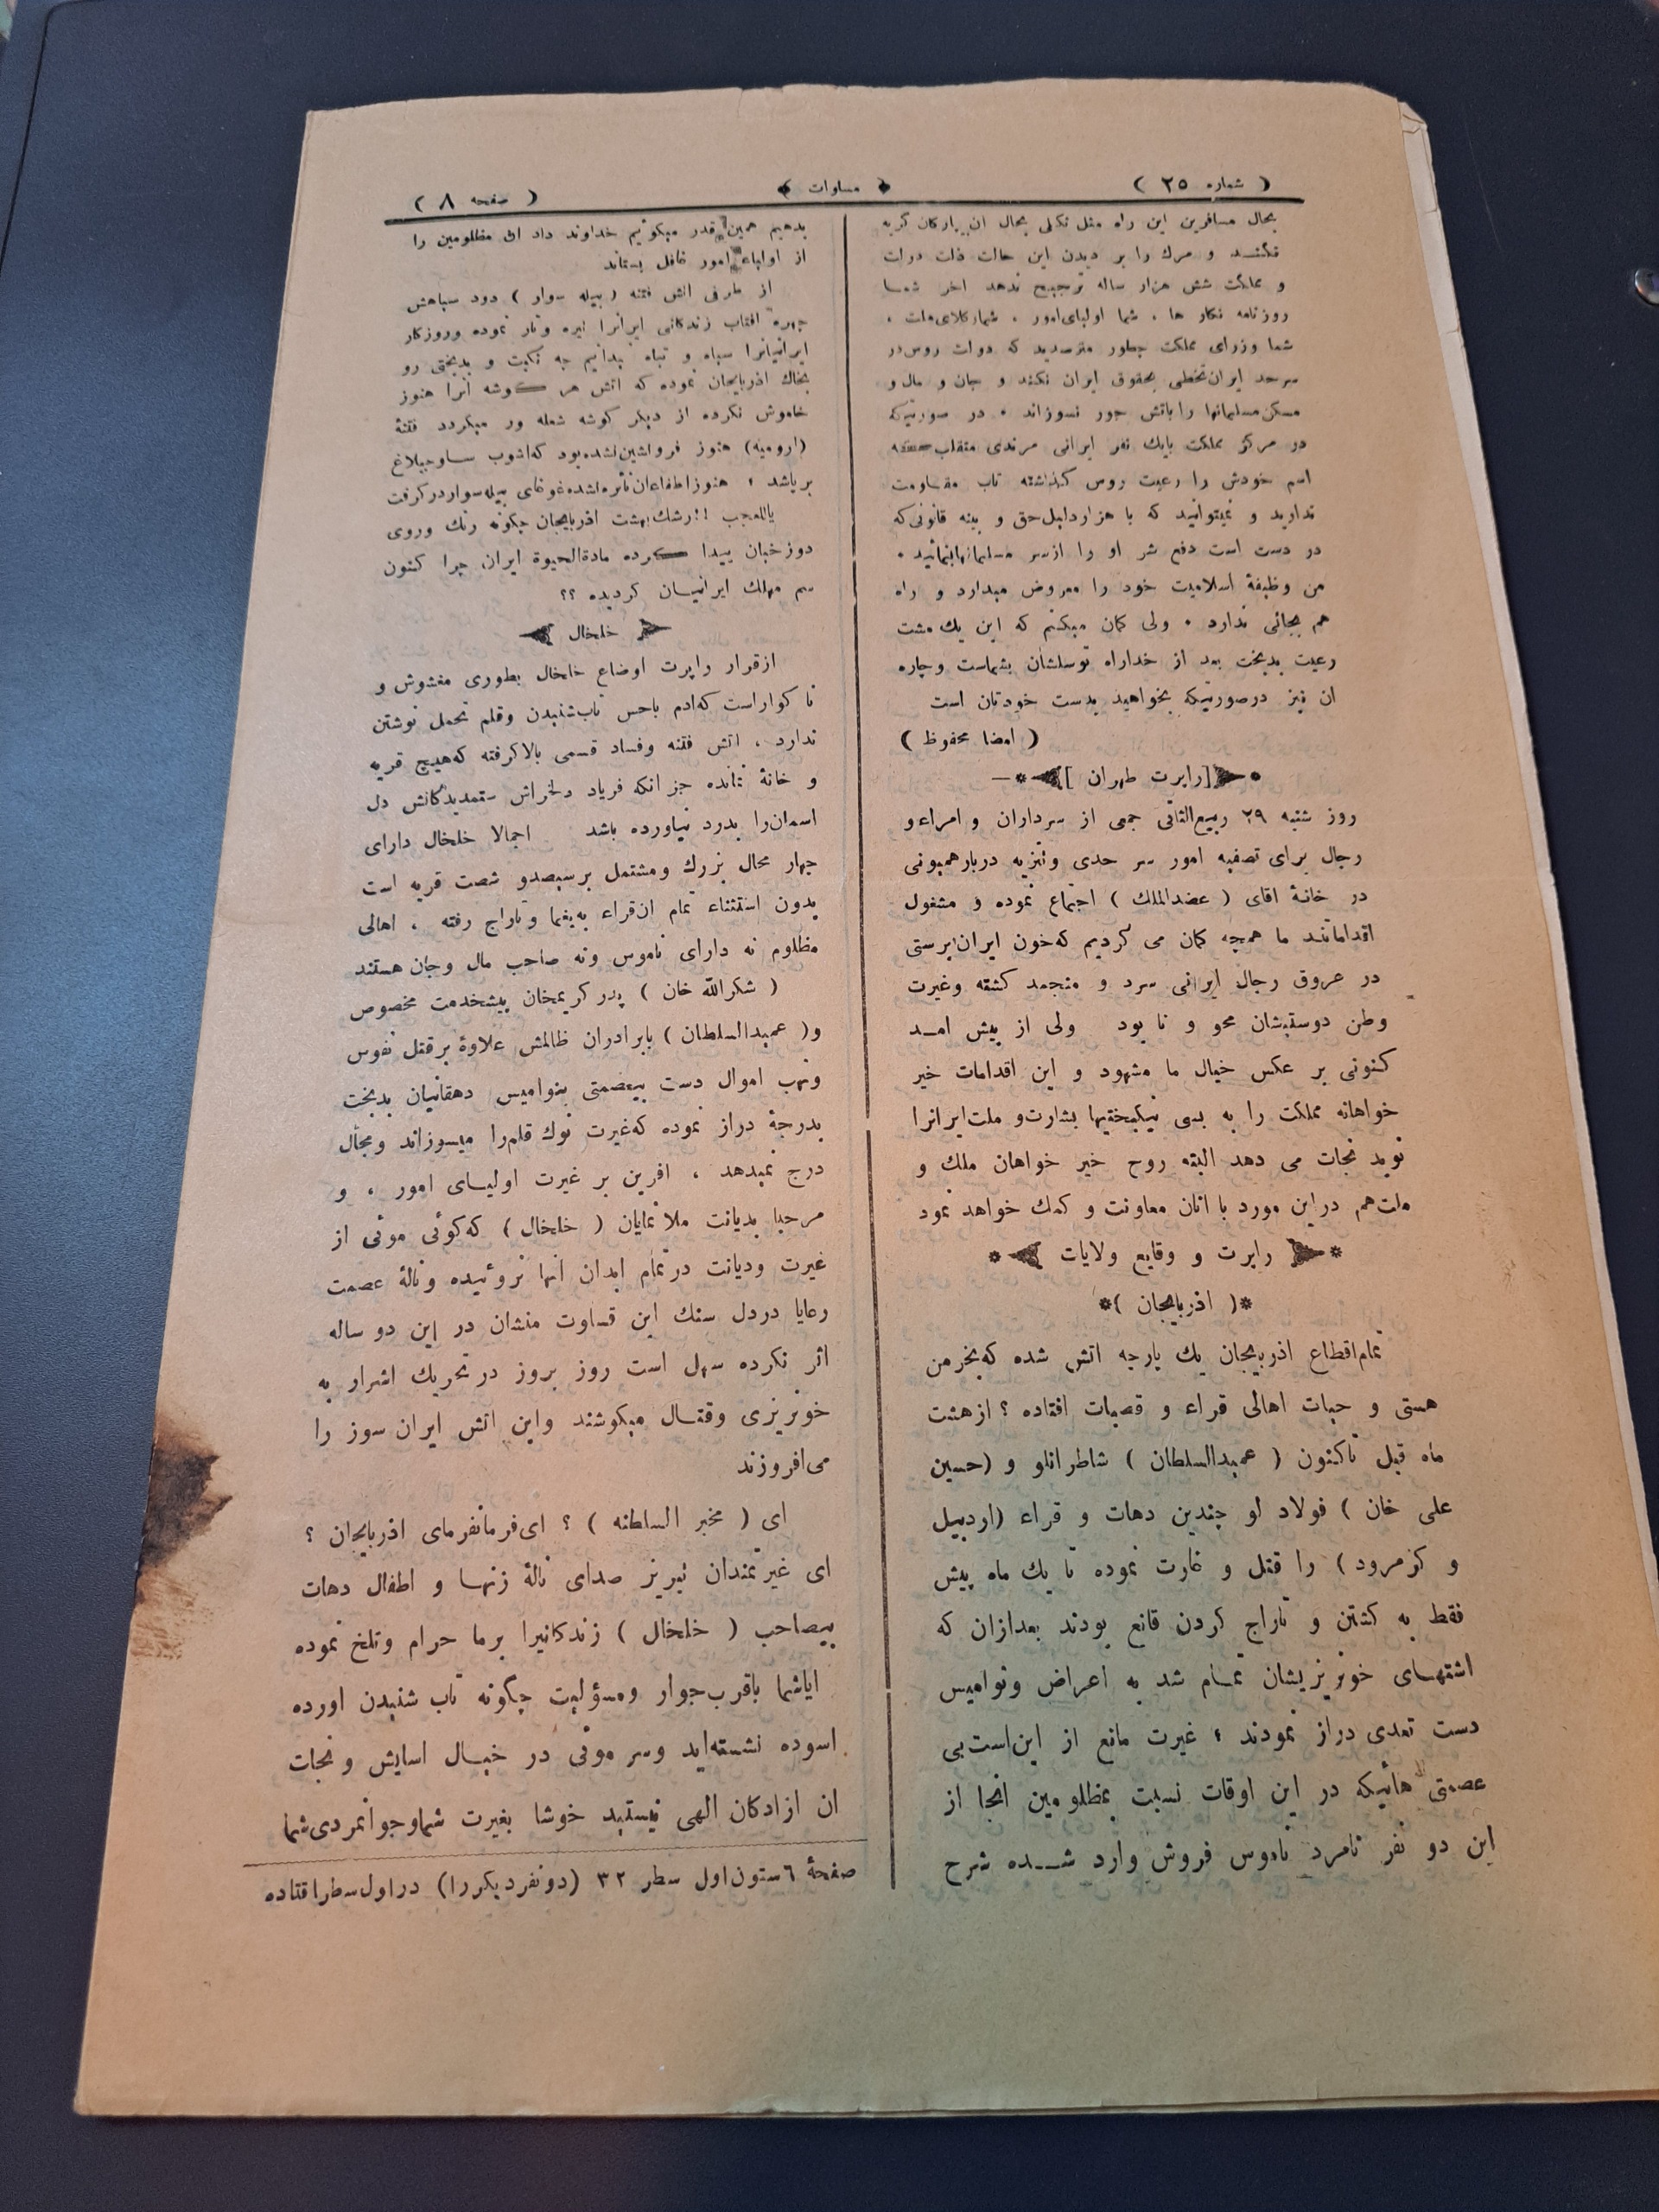 ( شماره ۲۵ )
مساوات
( صفحه ۸ )
بحال مسافرین این راه مثل نکلی بحال ان پیارکان کریه
نکنند و مرك را بر دیدن این حالت ذلت دولت
و مملکت شش هزار ساله ترجیح ندهد اخر شما
روزنامه نکار ها ، شما اولیای امور ، شما وکلای ملت ،
شما وزرای مملکت چطور مترصدید که دولت روس در
سرحد ایران تخطی بحقوق ایران نکند و جان و مال و
مسکن مسلمانها را باتش جور نسوزاند ٠ در صورتیکه
در مرکز مملکت بایك نفر ایرانی مرندی متقلب که
اسم خودش را رعیت روس کذاشته تاب مقاومت
ندارید و نمیتوانید که با هزار دلیل حق و بینه قانونی که
در دست است دفع شر او را از سر مسلمانها بنمائید ٠
من وظیفهٔ اسلامیت خود را معروض میدارد و راه
هم بجائی ندارد ٠ ولی کمان میکنم که این یك مشت
رعیت بدبخت بعد از خداراه توسلشان بشماست وچاره
ان نیز درصورتیکه بخواهید بدست خودتان است
( امضا محفوظ )
[ راپرت طهران ]
روز شنبه ۲۹ ربیع الثانی جمعی از سرداران و امراء و
رجال برای تصفیه امور سر حدی وتنزیه دربار همیونی
در خانهٔ اقای ( عضدالملك ) اجتماع نموده و مشغول
اقدامانند ما همچه کمان می کردیم که خون ایران پرستی
در عروق رجال ایرانی سرد و منجمد کشته وغیرت
وطن دوستیشان محو و نا بود ولی از پیش امد
کنونی بر عکس خیال ما مشهود و این اقدامات خیر
خواهانه مملکت را به بسی نیکبختیها بشارت و ملت ایرانرا
نوید نجات می دهد البته روح خیر خواهان ملك و
ملت هم دراین مورد با انان معاونت و کمك خواهد نمود
* راپرت و وقایع ولایات *
*( اذربایجان )*
تمام اقطاع اذربایجان یك پارچه اتش شده که بخرمن
هستی و حیات اهالی قراء و قصبات افتاده ؟ از هشت
ماه قبل تاکنون ( عمیدالسلطان ) شاطرانلو و (حسین
علی خان ) فولاد لو چندین دهات و قراء (اردبیل
و کزمرود ) را قتل و غارت نموده تا یك ماه پیش
فقط به کشتن و تاراج کردن قانع بودند بعدازان که
اشتهای خونریزیشان تمام شد به اعراض ونوامیس
دست تعدی دراز نمودند ؛ غیرت مانع از این است بی
عصمتی هائیکه در این اوقات نسبت بمظلومین انجا از
این دو نفر نامرد ناموس فروش وارد شده شرح
بدهیم همین قدر میکوئیم خداوند داد این مظلومین را
از اولیاء امور غافل بستاند
از طرفی اتش فتنه ( بیله سوار ) دود سیاهش
چهره افتاب زندکانی ایرانرا تیره وتار نموده وروزکار
ایرانیانرا سیاه و تباه ندانیم چه نکبت و بدبختی رو
بخاك اذربایجان نموده که اتش هر کوشه انرا هنوز
خاموش نکرده از دیکر کوشه شعله ور میکردد فتنهٔ
(ارومیه) هنوز فرو ننشین نشده بود که اشوب ساوجبلاغ
برپاشد ، هنوز اطفاء ان نائره نشده غوغای بیله سوار در کرفت
یاللعجب !! رشك بهشت اذربایجان چکونه رنك وروی
دوزخیان پیدا کرده مادةالحیوة ایران چرا کنون
سم مهلك ایرانیان کردیده ؟؟
خلخال
ازقرار راپرت اوضاع خلخال بطوری مغشوش و
نا کوار است که ادم باحس تاب شنیدن وقلم تحمل نوشتن
ندارد ، اتش فتنه وفساد قسمی بالا کرفته که هیچ قریه
و خانهٔ نمانده جز انکه فریاد دلخراش ستمدیدکانش دل
اسمان را بدرد نیاورده باشد اجمالا خلخال دارای
چهار محال بزرك ومشتمل بر سیصدو شصت قریه است
بدون استثناء تمام ان قراء به یغما وتاراج رفته ، اهالی
مظلوم نه دارای ناموس ونه صاحب مال وجان هستند
( شکرالله خان ) پدر کریمخان پیشخدمت مخصوص
و( عمیدالسلطان ) بابرادران ظالمش علاوهٔ بر قتل نفوس
ونهب اموال دست بیعصمتی بنوامیس دهقانیان بدبخت
بدرجهٔ دراز نموده که غیرت نوك قلم را میسوزاند ومجال
درج نمیدهد ، افرین بر غیرت اولیای امور ، و
مرحبا بدیانت ملا نمایان ( خلخال ) که کوئی موئی از
غیرت ودیانت در تمام ابدان انها نروئیده ونالهٔ عصمت
رعایا دردل سنك این قساوت منشان در این دو ساله
اثر نکرده سهل است روز بروز در تحریك اشرار به
خونریزی وقتال میکوشند واین اتش ایران سوز را
می افروزند
ای ( مخبر السلطنه ) ؟ ای فرمانفرمای اذربایجان ؟
ای غیرتمندان تبریز صدای نالهٔ زنها و اطفال دهات
بیصاحب ( خلخال ) زندکانیرا برما حرام وتلخ نموده
ایاشما باقرب جوار ومسؤلیت چکونه تاب شنیدن اورده
اسوده نشسته اید وسر موئی در خیال اسایش ونجات
ان ازادکان الهی نیستید خوشا بغیرت شما وجوانمردی شما
صفحهٔ ٦ ستون اول سطر ۳۲ (دونفر دیکر را) در اول سطر افتاده